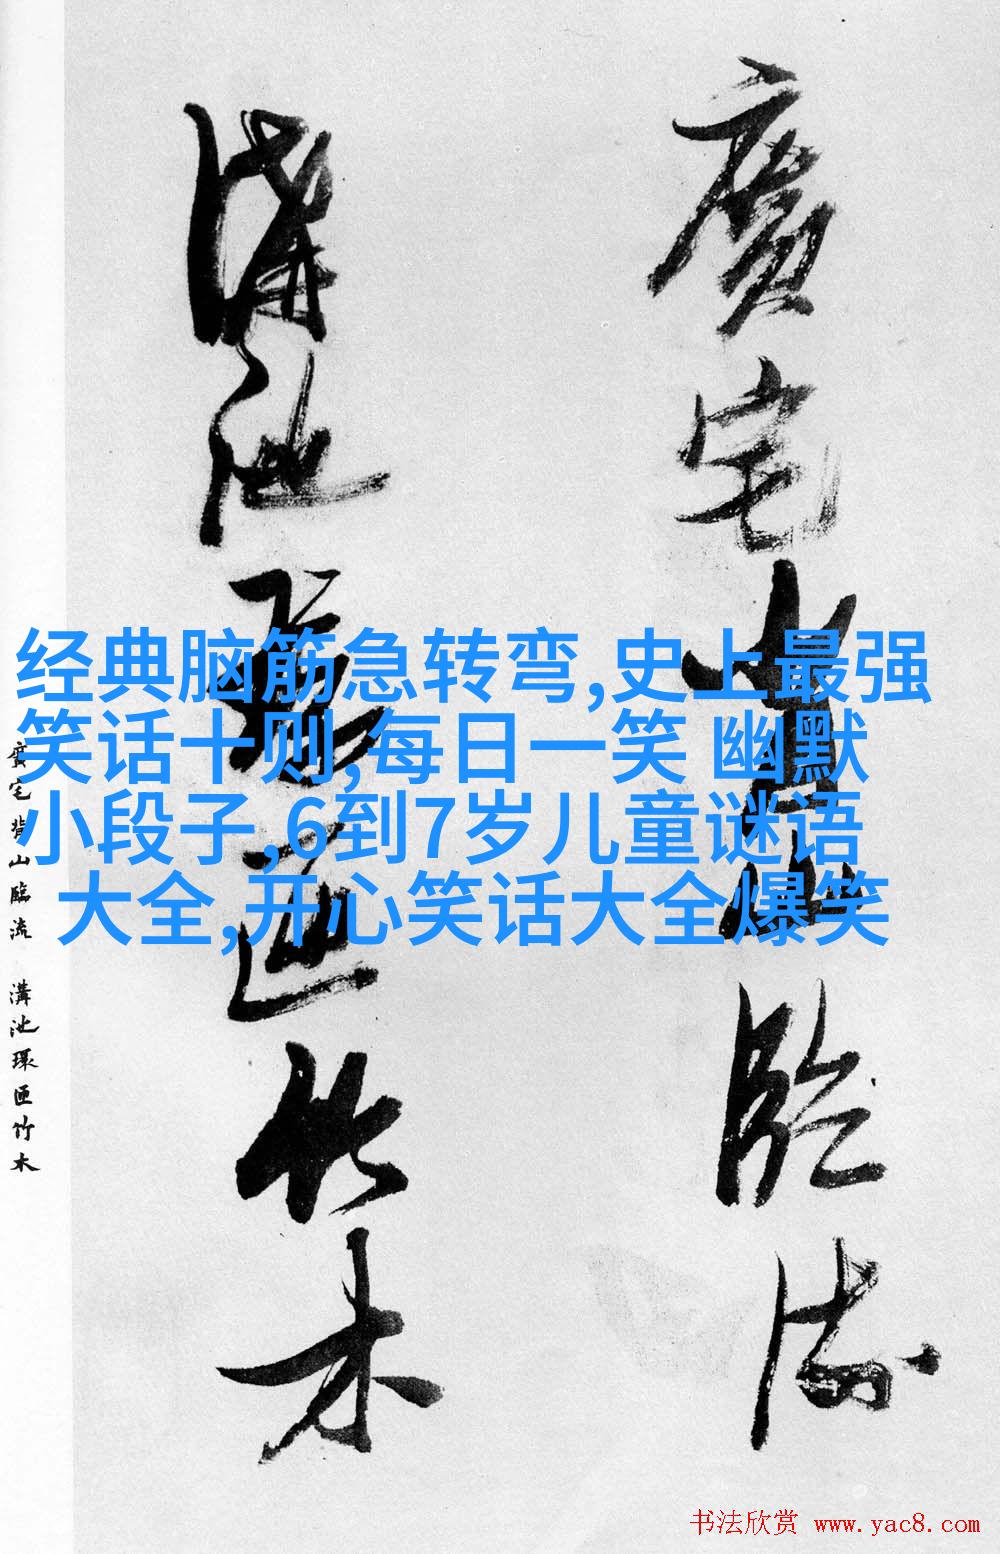 廣宅背山臨流
溝池環匝竹木
经典脑筋急转弯,史上最强
笑话十则,每日一笑 幽默
小段子,6到7岁儿童谜语
大全,开心笑话大全爆笑
廣宅背山臨流 溝池環匝竹木
书法欣赏 www.yac8.com